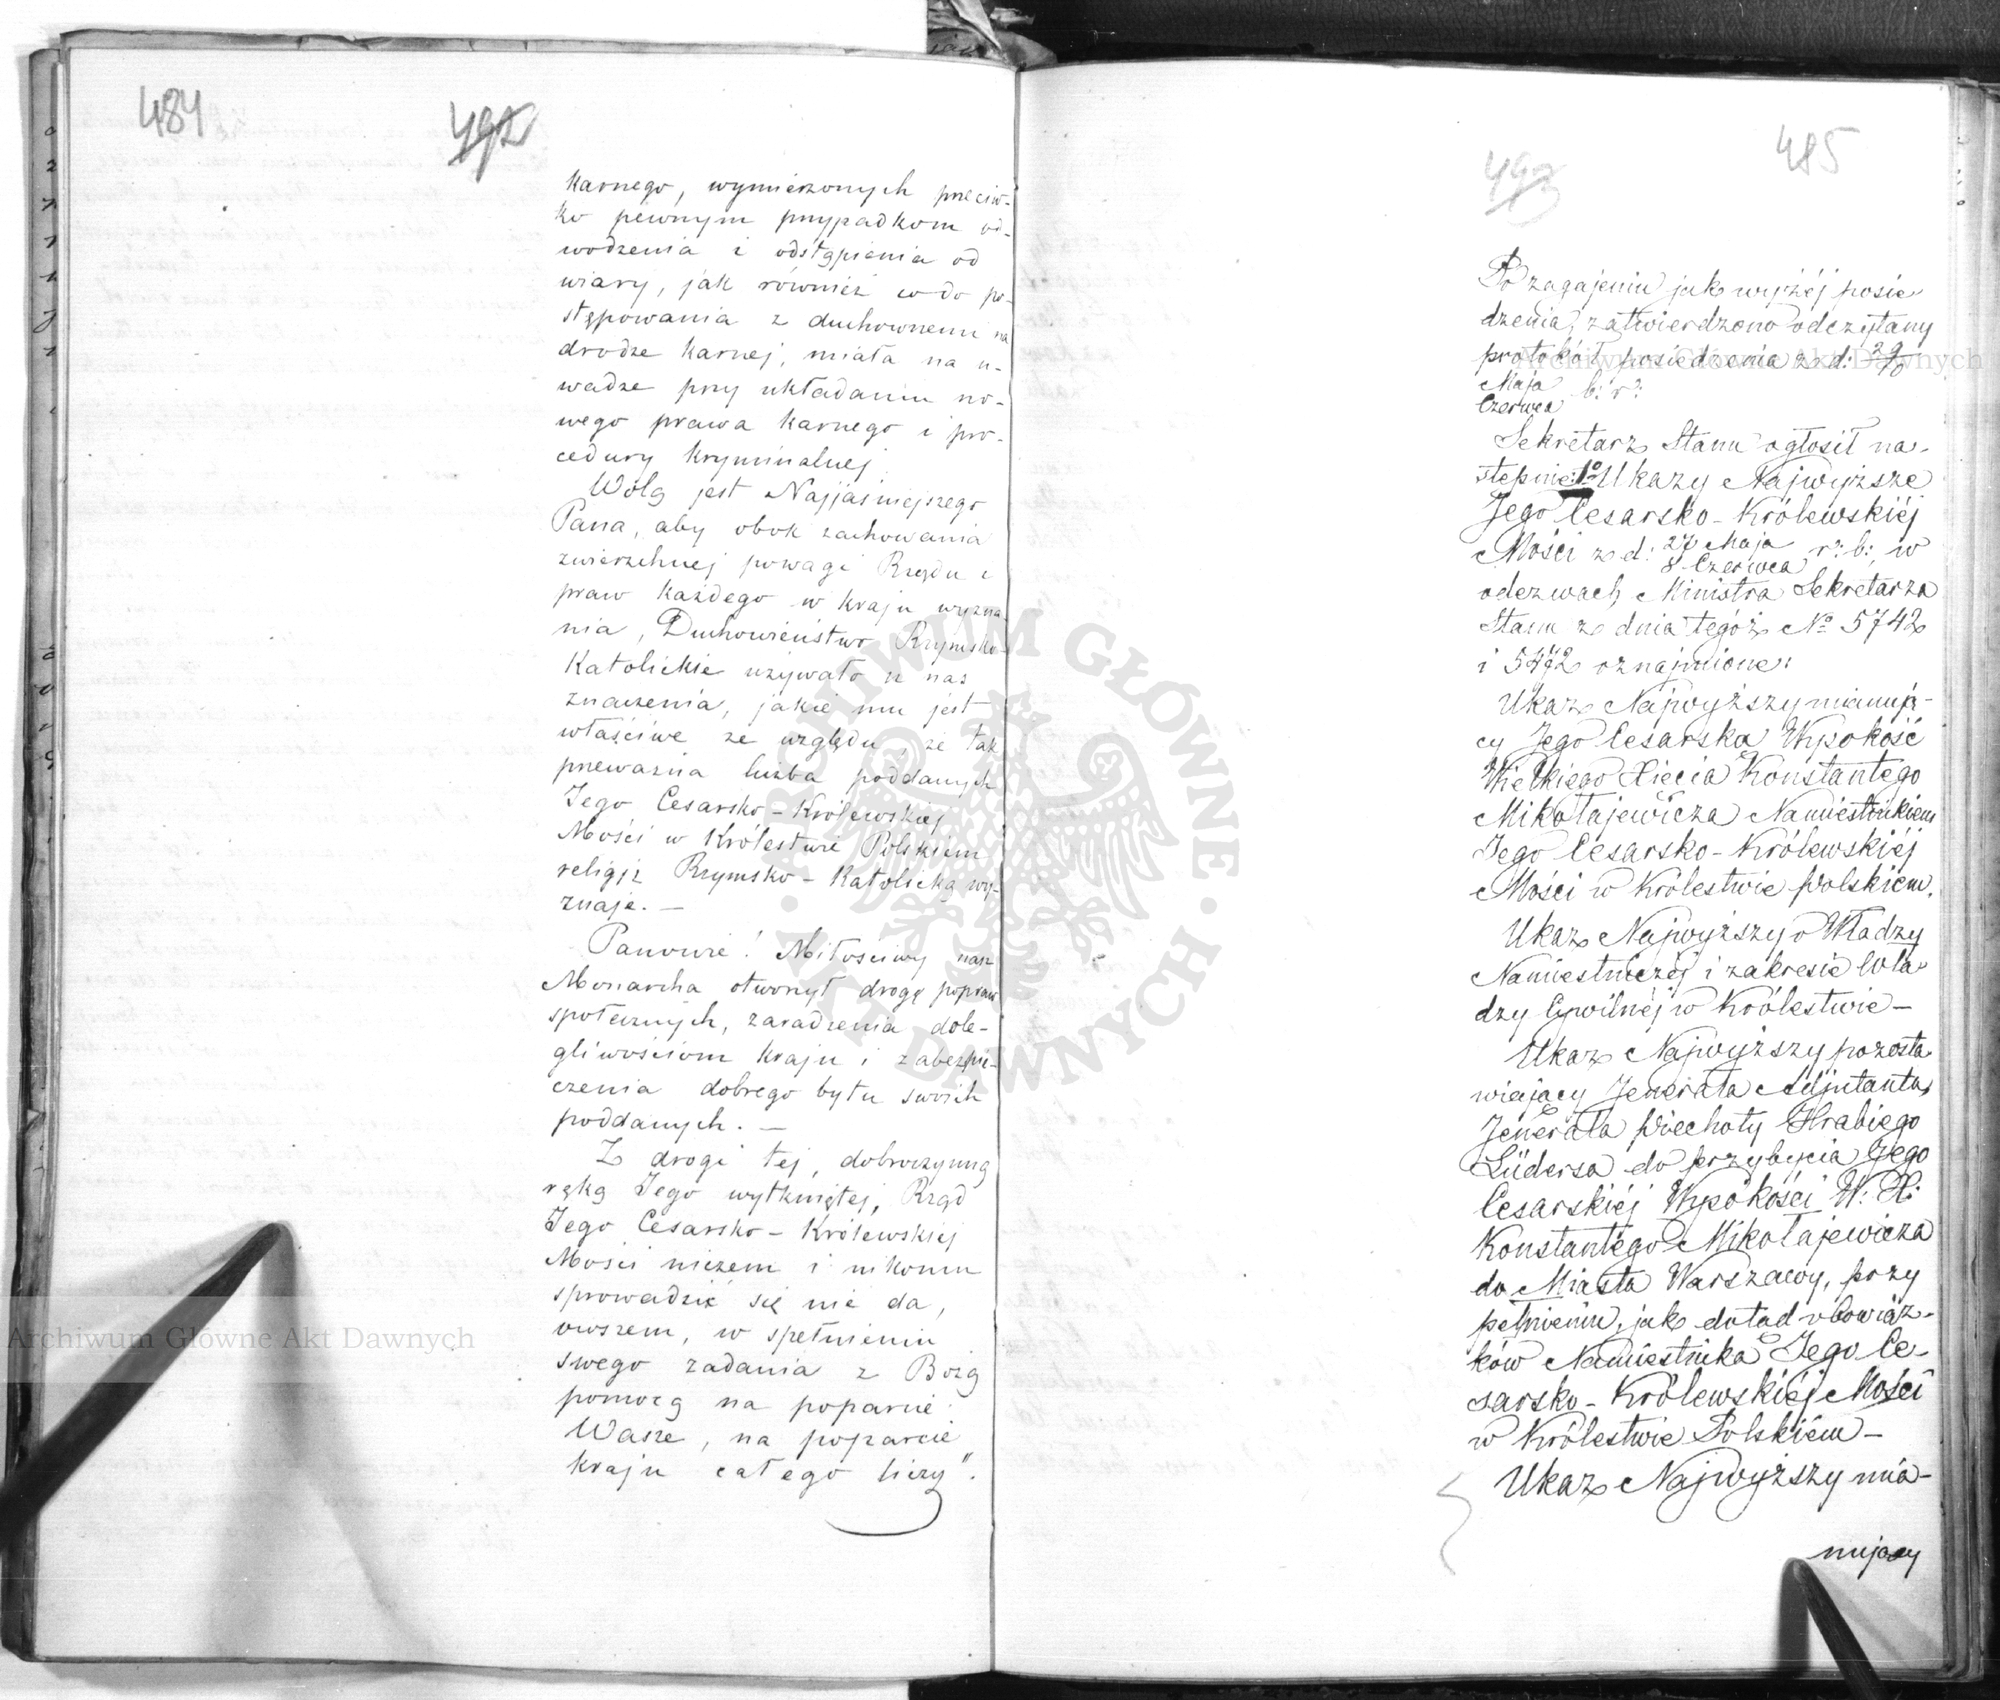 484
492
karnego, wymierzonych przeciw-
ko pewnym przypadkom od-
wodzenia i odstąpienia od
wiary, jak również co do po-
stępowania z duchownemi na
drodze karnej, miała na u-
wadze przy układaniu no-
wego prawa karnego i pro-
cedury kryminalnej.
Wolą jest Najjaśniejszego
Pana, aby obok zachowania
zwierzchniej powagi Rządu i
praw każdego w kraju wyzna-
nia, Duchowieństwo Rzymsko-
Katolickie używało u nas
znaczenia, jakie mu jest
właściwe ze względu, że tak
przeważna liczba poddanych
Jego Cesarsko-Królewskiej
Mości w Królestwie Polskiem
religję Rzymsko-Katolicką wy-
znaje. —
Panowie! Miłościwy nasz
Monarcha otworzył drogę popraw
społecznych, zaradzenia dole-
gliwościom kraju i zabezpie-
czenia dobrego bytu swoich
poddanych. —
Z drogi tej, dobroczynną
ręką Jego wytkniętej, Rząd
Jego Cesarsko-Królewskiej
Mości niczem i nikomu
sprowadzić się nie da,
owszem, w spełnieniu
swego zadania z Bożą
pomocą na poparcie
Wasze, na poparcie
kraju całego liczy".
485
493
Po zagajeniu jak wyżéj posie
dzenia, zatwierdzono odczytany
protokół posiedzenia z d: 29/10
Maja
Czerwca b: r:
Sekretarz Stanu ogłosił na-
stępnie: 1o Ukazy Najwyższe
Jego Cesarsko-Królewskiéj
Mości z d: 27 Maja
8 Czerwca r: b:, w
odezwach Ministra Sekretarza
Stanu z dnia tegóż No 5742
i 5472 oznajmione:
Ukaz Najwyższy mianują-
cy Jego Cesarską Wysokość
Wielkiego Xięcia Konstantego
Mikołajewicza Namiestnikiem
Jego Cesarsko-Królewskiéj
Mości w Królestwie Polskiem.
Ukaz Najwyższy o Władzy
Namiestniczéj i zakresie Wła-
dzy Cywilnéj w Królestwie —
Ukaz Najwyższy pozosta-
wiający Jenerała Adjutanta,
Jenerała Piechoty Hrabiego
Lüdersa do przybycia Jego
Cesarskiéj Wysokości W: X:
Konstantego Mikołajewicza
do Miasta Warszawy, przy
pełnieniu, jak dotąd obowiąz-
ków Namiestnika Jego Ce-
sarsko-Królewskiéj Mości
w Królestwie Polskiém —
Ukaz Najwyższy mia-
nujący
Archiwum Główne Akt Dawnych
Archiwum Główne Akt Dawnych
ARCHIWUM GŁÓWNE · AKT DAWNYCH ·